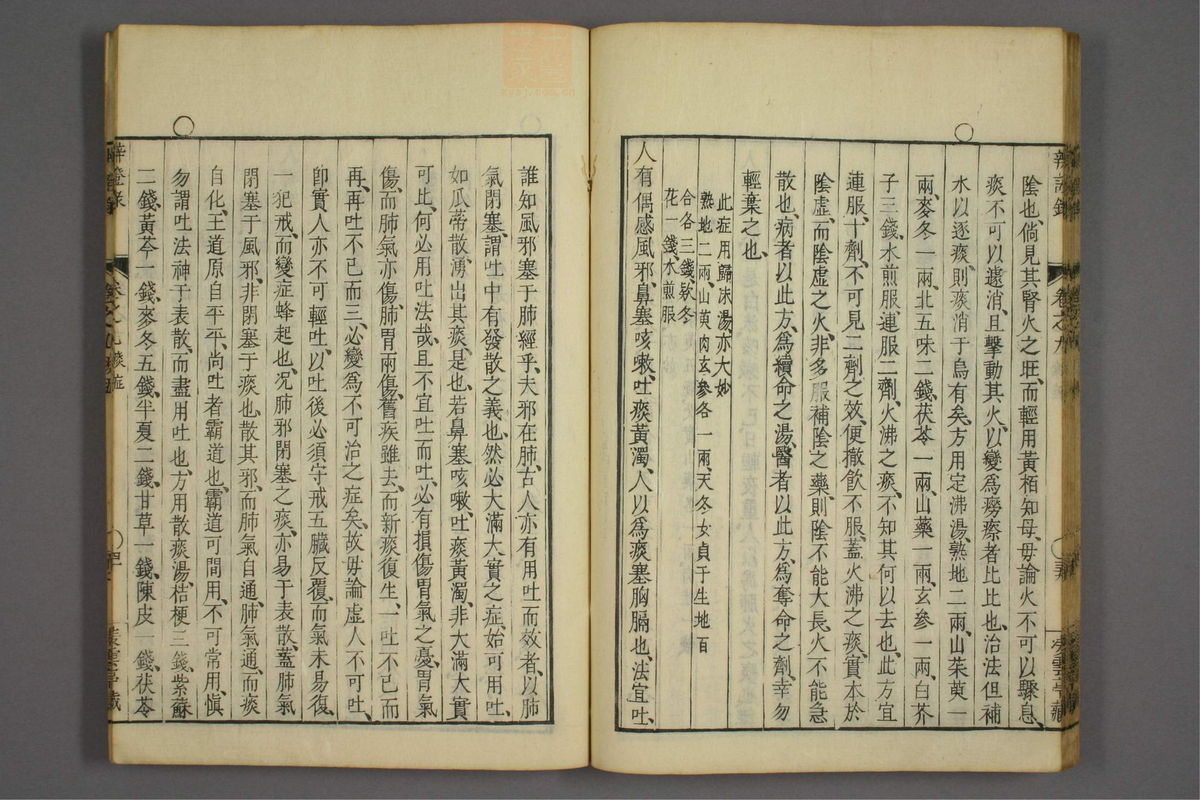 陰也、倘見其腎火之旺、而輕用黃栢知母、毋論火不可以驟息、
痰不可以遽消、且擊動其火、以變爲癆瘵者比比也、治法但補
水以逐痰、則痰消于烏有矣、方用定沸湯、熟地二兩、山茱萸一
兩、麥冬一兩、北五味二錢、茯苓一兩、山藥一兩、玄參一兩、白芥
子三錢、水煎服、連服二劑、火沸之痰、不知其何以去也、此方宜
連服十劑、不可見二劑之效、便撤飲不服、蓋火沸之痰、實本於
陰虛、而陰虛之火、非多服補陰之藥、則陰不能大長、火不能急
散也、病者以此方、爲續命之湯、醫者以此方、爲奪命之劑、幸勿
輕棄之也、
此症用歸沬湯亦大妙
熟地二兩、山萸肉玄參各一兩、天冬女貞子生地百
合各三錢、欵冬
花一錢、水煎服
人有偶感風邪、鼻塞咳嗽、吐痰黃濁、人以爲痰塞胸膈也、法宜吐、
誰知風邪塞于肺經乎、夫邪在肺、古人亦有用吐而效者、以肺
氣閉塞、謂吐中有發散之義也、然必大滿大實之症、始可用吐、
如瓜蒂散、湧出其痰、是也、若鼻塞咳嗽、吐痰黃濁、非大滿大實
可比、何必用吐法哉、且不宜吐而吐、必有損傷胃氣之憂、胃氣
傷、而肺氣亦傷、肺胃兩傷、舊疾雖去、而新痰復生、一吐不已而
再、再吐不已而三、必變爲不可治之症矣、故毋論虛人不可吐、
卽實人亦不可輕吐、以吐後必須守戒、五臟反覆、而氣未易復、
一犯戒、而變症蜂起也、况肺邪閉塞之痰、亦易于表散、蓋肺氣
閉塞于風邪、非閉塞于痰也、散其邪、而肺氣自通、肺氣通、而痰
自化、王道原自平平、尚吐者霸道也、霸道可間用、不可常用、慎
勿謂吐法神于表散、而盡用吐也、方用散痰湯、桔梗三錢、紫蘇
二錢、黃芩一錢、麥冬五錢、半夏二錢、甘草一錢、陳皮一錢、茯苓